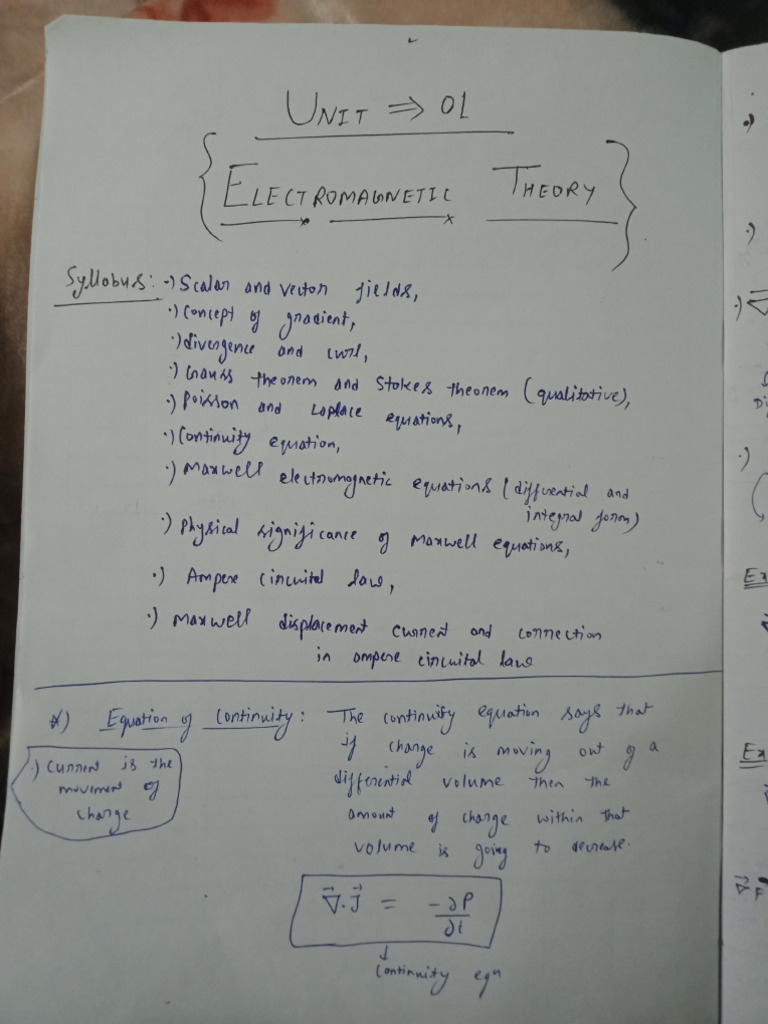 UNIT ⇒ 01
{ELECTROMAGNETIC THEORY}
Syllabus: •) Scalar and vector fields,
•) Concept of gradient,
•) divergence and curl,
•) Gauss theorem and Stokes theorem (qualitative),
•) Poisson and Laplace equations,
•) Continuity equation,
•) Maxwell electromagnetic equations (differential and
integral form)
•) Physical significance of Maxwell equations,
•) Ampere circuital law,
•) Maxwell displacement current and connection
in ampere circuital law
*) Equation of Continuity: The continuity equation says that
if charge is moving out of a
differential volume then the
amount of charge within that
volume is going to decrease.
•) Current is the
movement of
charge
∇⃗.J⃗ = -∂P/∂t
↓
Continuity eqn
Ex
Ex
∇⃗ F